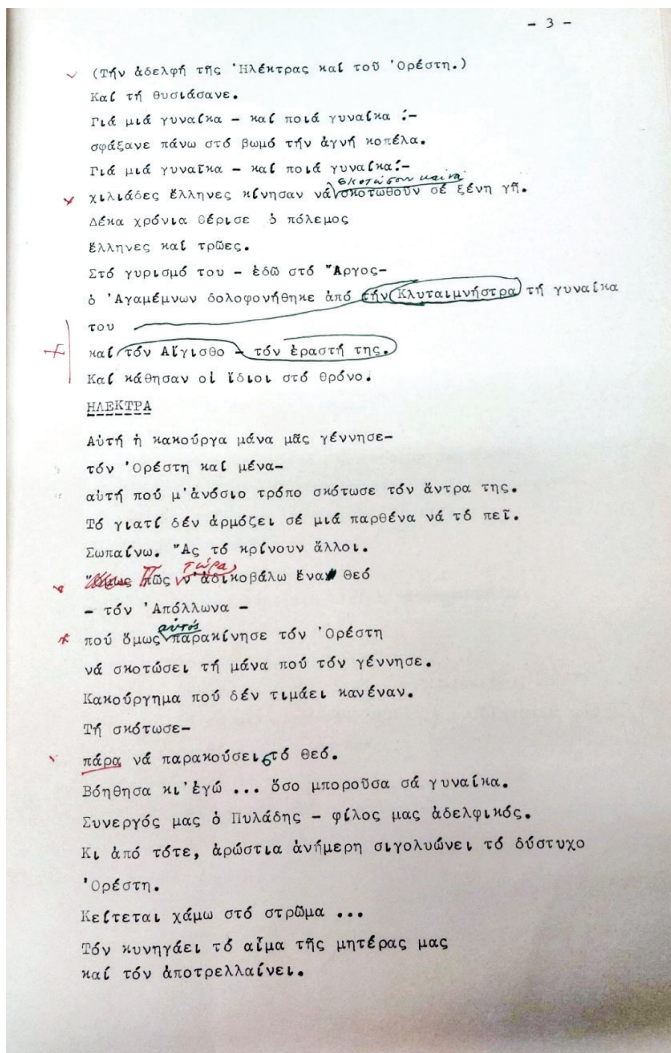 - 3 -
(Τήν ἀδελφή τῆς Ἠλέκτρας καί τοῦ Ὀρέστη.)
Καί τή θυσιάσανε.
Γιά μιά γυναίκα - καί ποιά γυναίκα !-
σφάξανε πάνω στό βωμό τήν ἁγνή κοπέλα.
Γιά μιά γυναῖκα - καί ποιά γυναίκα!-
σκοτώσουν και να
χιλιάδες ἕλληνες κίνησαν νά σκοτωθοῦν σέ ξένη γῆ.
Δέκα χρόνια θέρισε ὁ πόλεμος
ἕλληνες καί τρῶες.
Στό γυρισμό του - ἐδῶ στό Ἄργος-
ὁ Ἀγαμέμνων δολοφονήθηκε ἀπό τήν Κλυταιμνήστρα τή γυναίκα
του
καί τόν Αἴγισθο - τόν ἐραστή της.
Καί κάθησαν οἱ ἴδιοι στό θρόνο.
ΗΛΕΚΤΡΑ
Αὐτή ἡ κακούργα μάνα μᾶς γέννησε-
τόν Ὀρέστη καί μένα-
αὐτή πού μ'ἀνόσιο τρόπο σκότωσε τόν ἄντρα της.
Τό γιατί δέν ἁρμόζει σέ μιά παρθένα νά τό πεῖ.
Σωπαίνω. Ἄς τό κρίνουν ἄλλοι.
τώρα,
Ὅμως Πῶς ν'ἀδικοβάλω ἕνα θεό
- τόν Ἀπόλλωνα -
αὐτός
πού ὅμως παρακίνησε τόν Ὀρέστη
νά σκοτώσει τή μάνα πού τόν γέννησε.
Κακούργημα πού δέν τιμάει κανέναν.
Τή σκότωσε-
πάρα νά παρακούσει στό θεό.
Βόηθησα κι'ἐγώ ... ὅσο μποροῦσα σά γυναίκα.
Συνεργός μας ὁ Πυλάδης - φίλος μας ἀδελφικός.
Κι ἀπό τότε, ἀρώστια ἀνήμερη σιγολυώνει τό δύστυχο
Ὀρέστη.
Κείτεται χάμω στό στρῶμα ...
Τόν κυνηγάει τό αἷμα τῆς μητέρας μας
καί τόν ἀποτρελλαίνει.